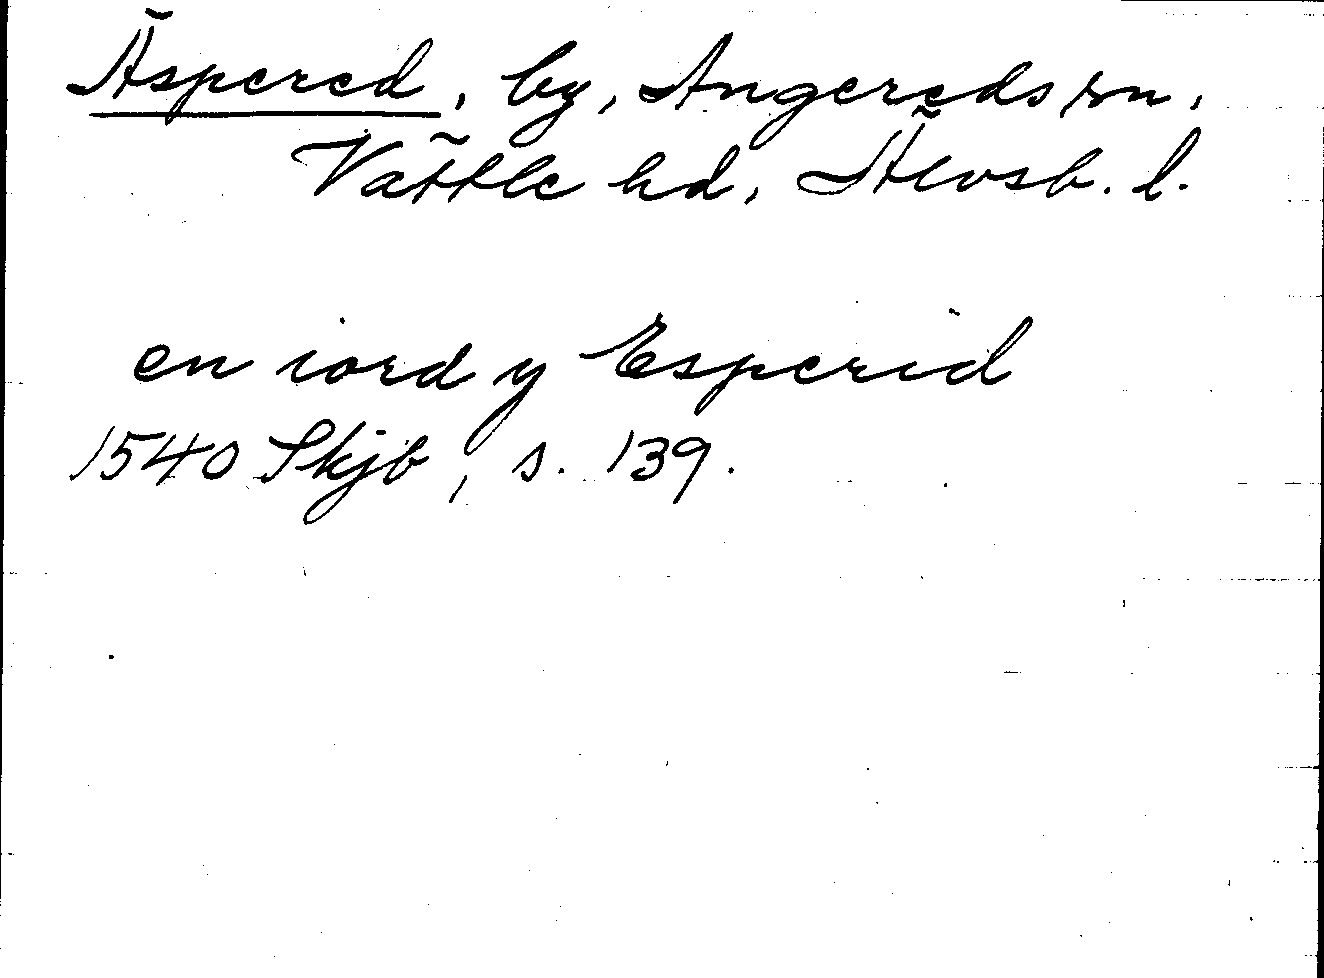 Äspered, by, Angereds sn,
Vättle hd, Älvsb. l.
en iord y Esperid
1540 Skjb, s. 139.